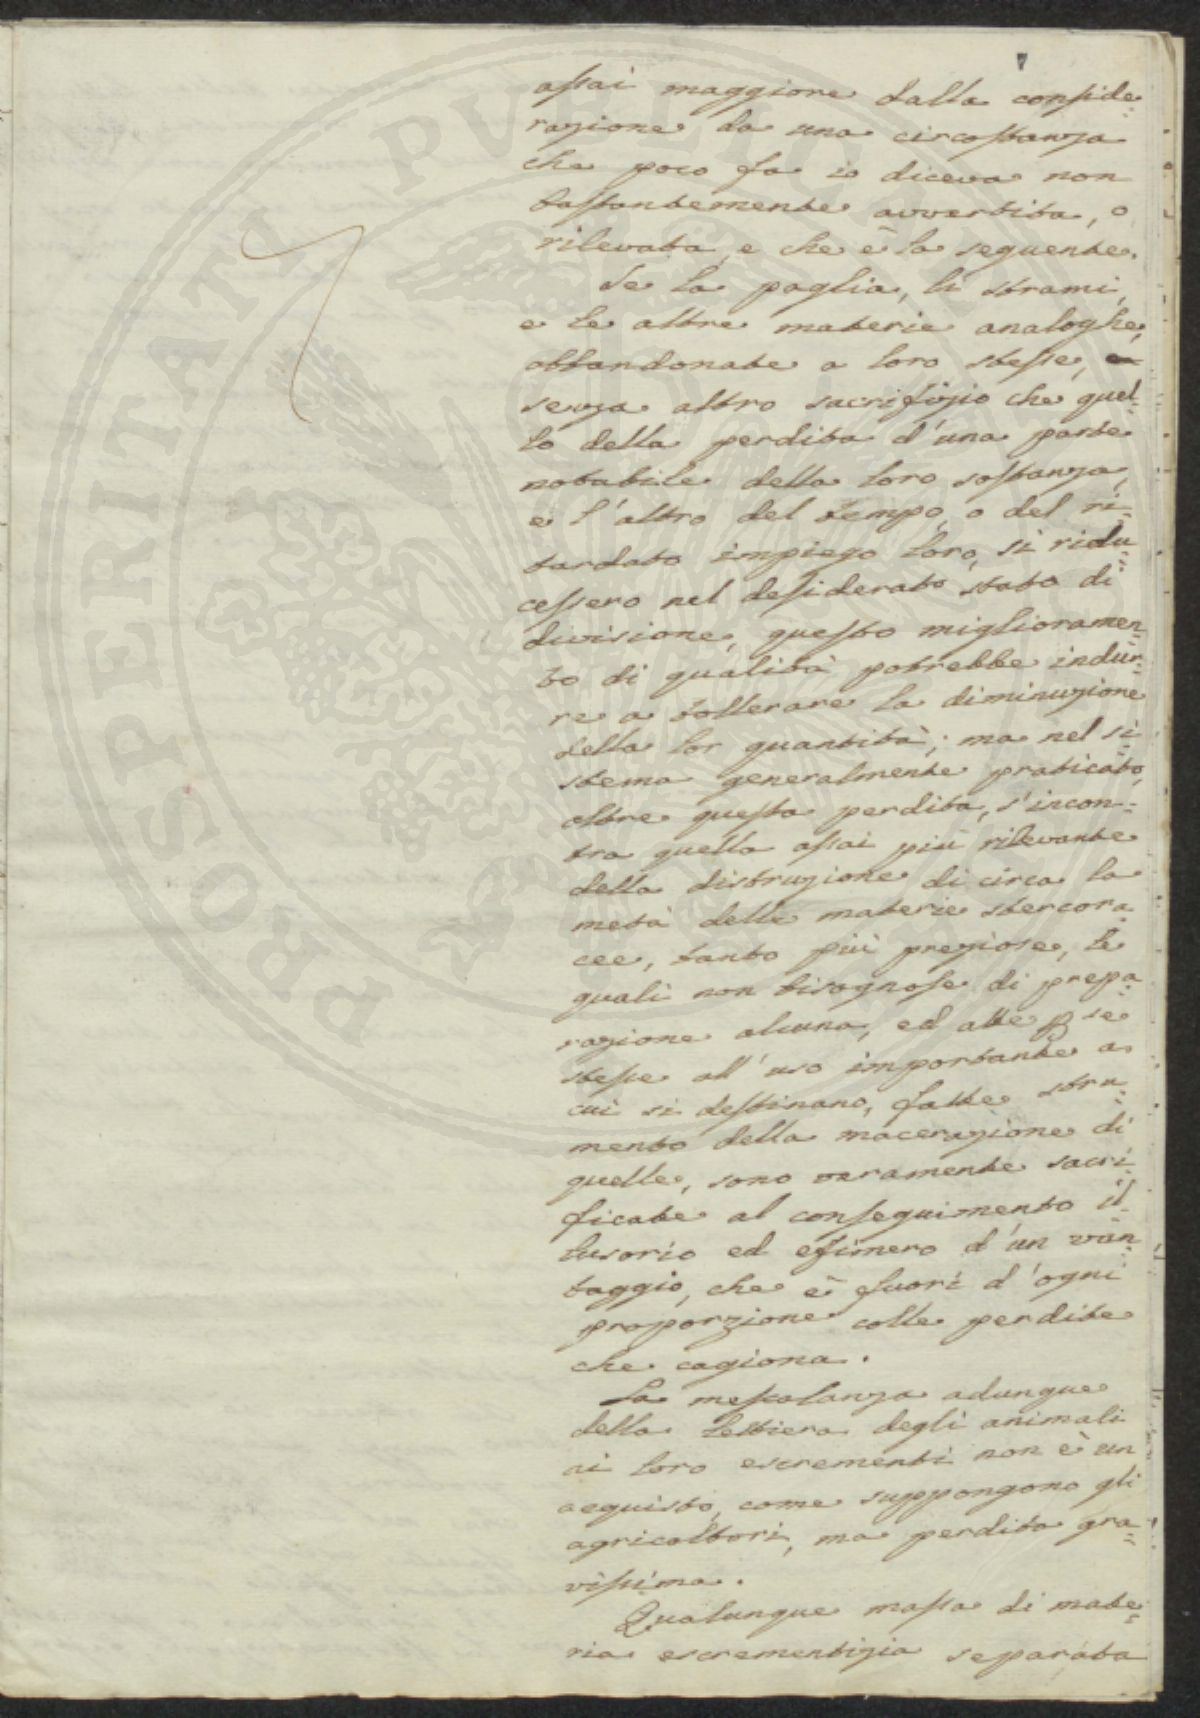 7
assai maggiore dalla conside=
razione da una circostanza
che poco fa io diceva non
bastantemente avvertita, o
rilevata, e che è la seguente.
Se la paglia, li strami,
e le altre materie analoghe,
abbandonate a loro stesse,
senza altro sacrifizio che quel=
lo della perdita d'una parte
notabile della loro sostanza,
e l'altro del tempo, o del ri=
tardato impiego loro, si ridu=
cessero nel desiderato stato di
divisione, questo miglioramen=
to di qualità potrebbe indur=
re a tollerare la diminuzione
della lor quantità; ma nel si=
stema generalmente praticato,
oltre questa perdita, s'incon=
tra quella assai più rilevante
della distruzione di circa la
metà delle materie stercora=
cee, tanto più preziose, le
quali non bisognose di prepa=
razione alcuna, ed atte p se
stesse all'uso importante a
cui si destinano, fatte stru=
mento della macerazione di
quelle, sono veramente sacri=
ficate al conseguimento il=
lusorio ed efimero d'un van=
taggio, che è fuori d'ogni
proporzione colle perdite
che cagiona.
La mescolanza adunque
della lettiera degli animali
ai loro escrementi non è un
acquisto, come suppongono gli
agricoltori, ma perdita gra=
vissima.
Qualunque massa di mate=
ria escrementizia separata
PROSPERITATI PUBLICAE